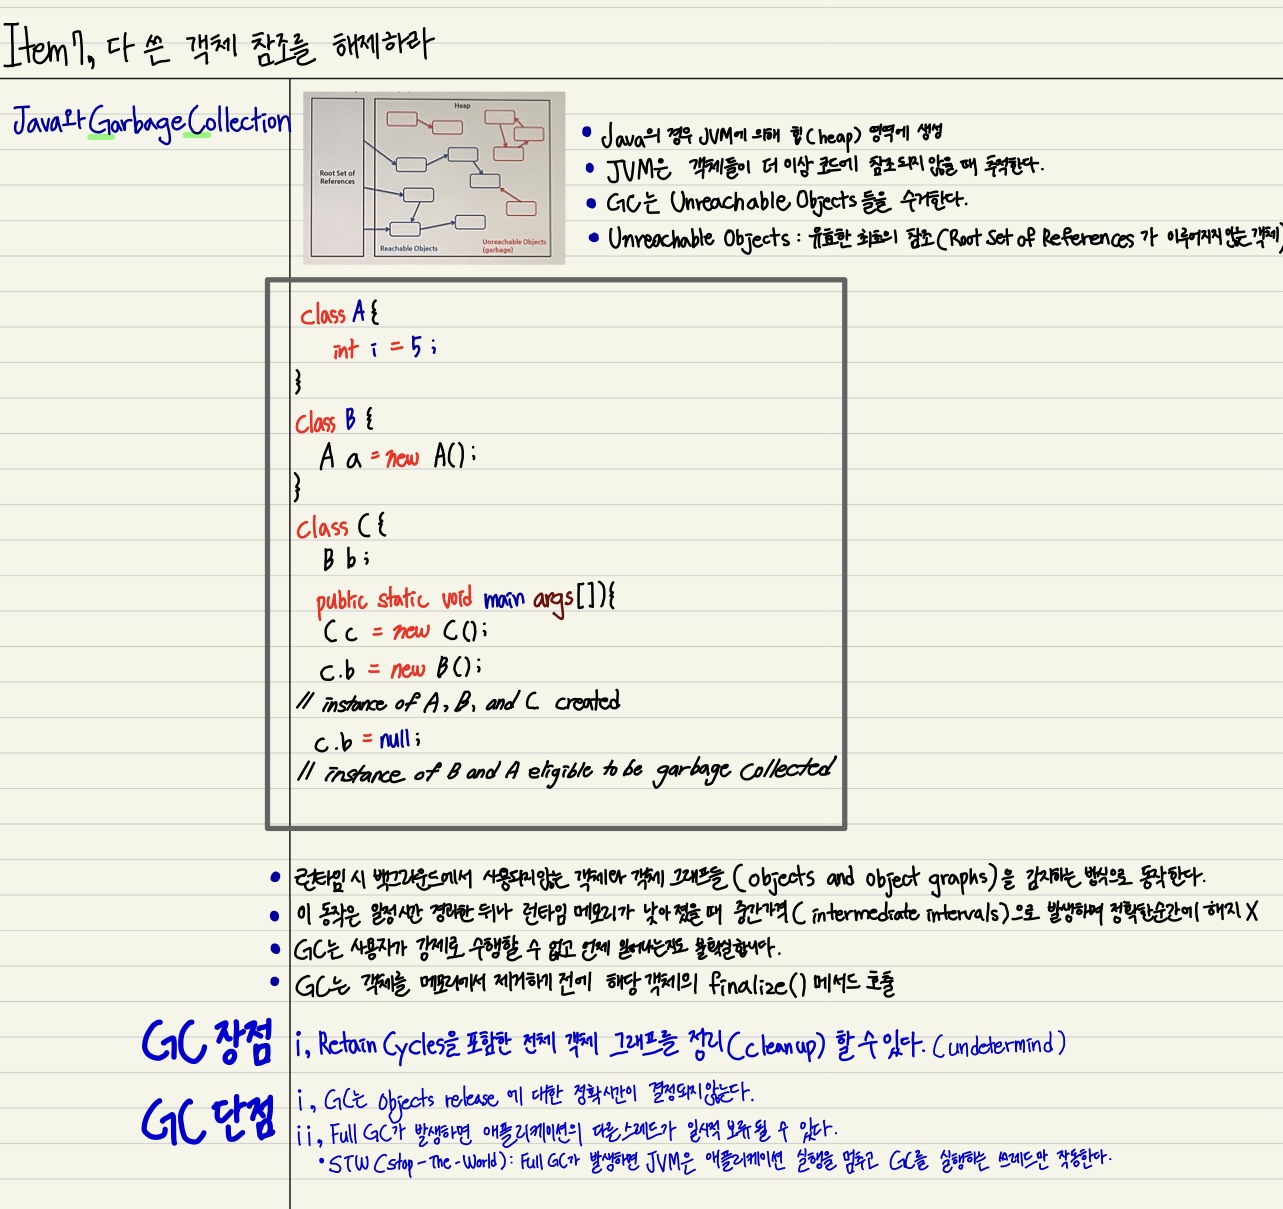 Item 7, 다 쓴 객체 참조를 해제하라
Java와 Garbage Collection
Heap
Root Set of
References
Reachable Objects
Unreachable Objects
(garbage)
• Java의 경우 JVM에 의해 힙(heap) 영역에 생성
• JVM은 객체들이 더 이상 코드에 참조되지 않을 때 추적한다.
• GC는 Unreachable Objects들을 수거한다.
• Unreachable Objects : 유효한 최초의 참조(Root Set of References가 이루어지지 않는 객체)
class A{
int i = 5;
}
class B {
A a = new A();
}
class C {
B b;
public static void main args[]){
C c = new C();
c.b = new B();
// instance of A, B, and C created
c.b = null;
// instance of B and A eligible to be garbage collected
• 런타임 시 백그라운드에서 사용되지 않는 객체와 객체 그래프들(objects and object graphs)을 감지하는 방식으로 동작한다.
• 이 동작은 일정시간 경과한 뒤나 런타임 메모리가 낮아졌을 때 중간가격(intermediate intervals)으로 발생하며 정확한순간에 해지 X
• GC는 사용자가 강제로 수행할 수 없고 언제 일어나는지도 불확실합니다.
• GC는 객체를 메모리에서 제거하기 전에 해당 객체의 finalize() 메서드 호출
GC 장점
i, Retain Cycles을 포함한 전체 객체 그래프를 정리(cleanup) 할 수 있다. (undetermind)
GC 단점
i, GC는 objects release 에 대한 정확시간이 결정되지않는다.
ii, Full GC가 발생하면 애플리케이션의 다른스레드가 일시적 보류될 수 있다.
• STW (stop-The-World): Full GC가 발생하면 JVM은 애플리케이션 실행을 멈추고 GC를 실행하는 쓰레드만 작동한다.